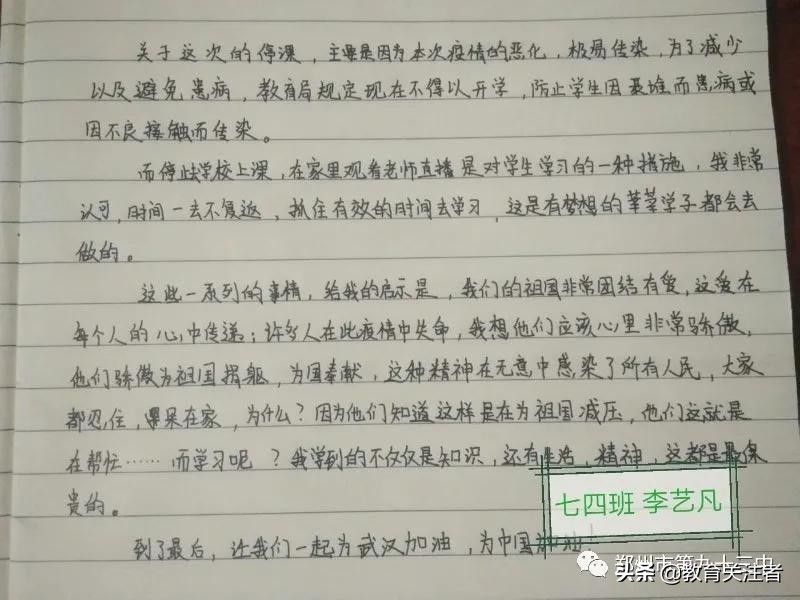 关于这次的停课，主要是因为本次疫情的恶化，极易传染，为了减少
以及避免患病，教育局规定现在不得以开学，防止学生因聚谁而患病或
因不良接触而传染。
而停止学校上课，在家里观看老师直播是对学生学习的一种措施，我非常
认可，时间一去不复返，抓住有效的时间去学习，这是有梦想的莘莘学子都会去
做的。
这些一系列的事情，给我的启示是，我们的祖国非常团结有爱，这爱在
每个人的心中传递；许多人在此疫情中失命，我想他们应该心里非常骄傲，
他们骄傲为祖国捐躯，为国奉献，这种精神在无意中感染了所有人民，大家
都忍住，呆在家，为什么？因为他们知道这样是在为祖国减压，他们这就是
在帮忙……而学习呢？我学到的不仅仅是知识，还有生活，精神，这都是最保
贵的。
到了最后，让我们一起为武汉加油，为中国加油
七四班 李艺凡
郑州市第九十三中
头条@教育关注者